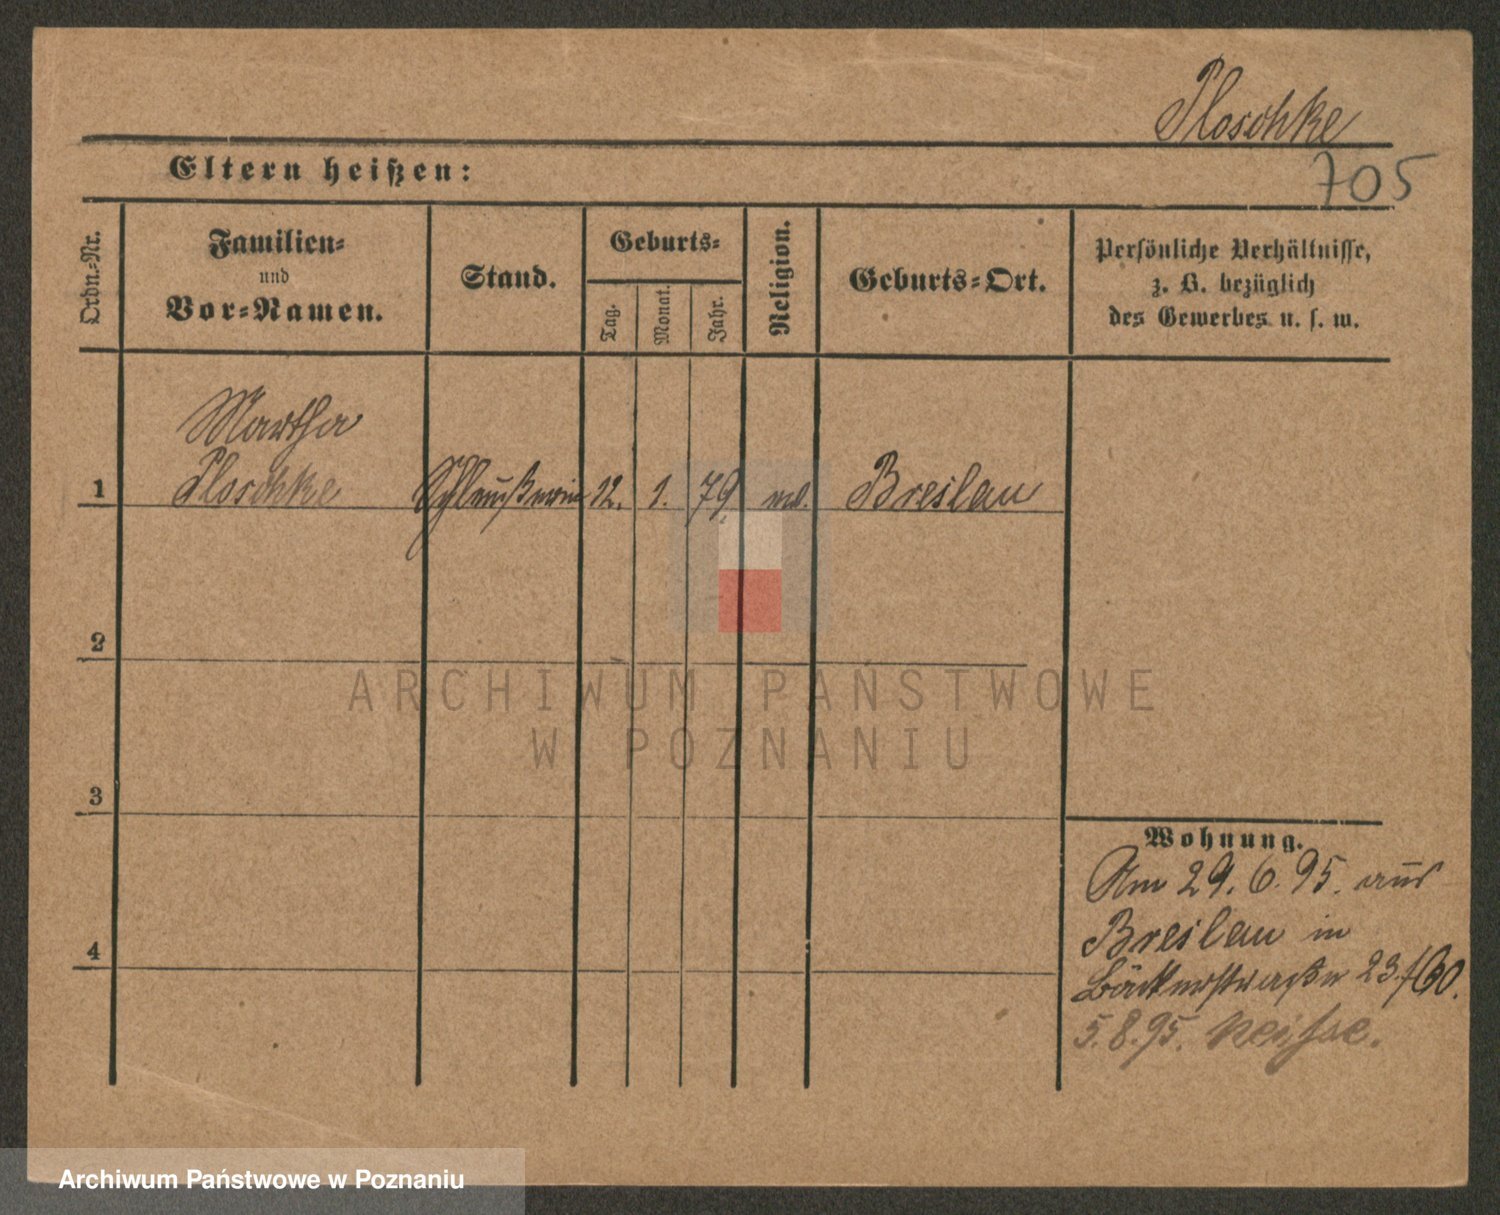 Ploschke
705
Eltern heißen:
Ordn.-Nr.
Familien-
und
Vor-Namen.
Stand.
Geburts-
Tag.
Monat.
Jahr.
Religion.
Geburts-Ort.
Persönliche Verhältnisse,
z. B. bezüglich
des Gewerbes u. s. w.
Martha
1 Ploschke 12. 1. 79 Breslau
2
3
4
Wohnung.
Am 29. 6. 95. aus
Breslau in
Bäckerstraße 23
5. 8. 95.
ARCHIWUM PAŃSTWOWE
W POZNANIU
Archiwum Państwowe w Poznaniu